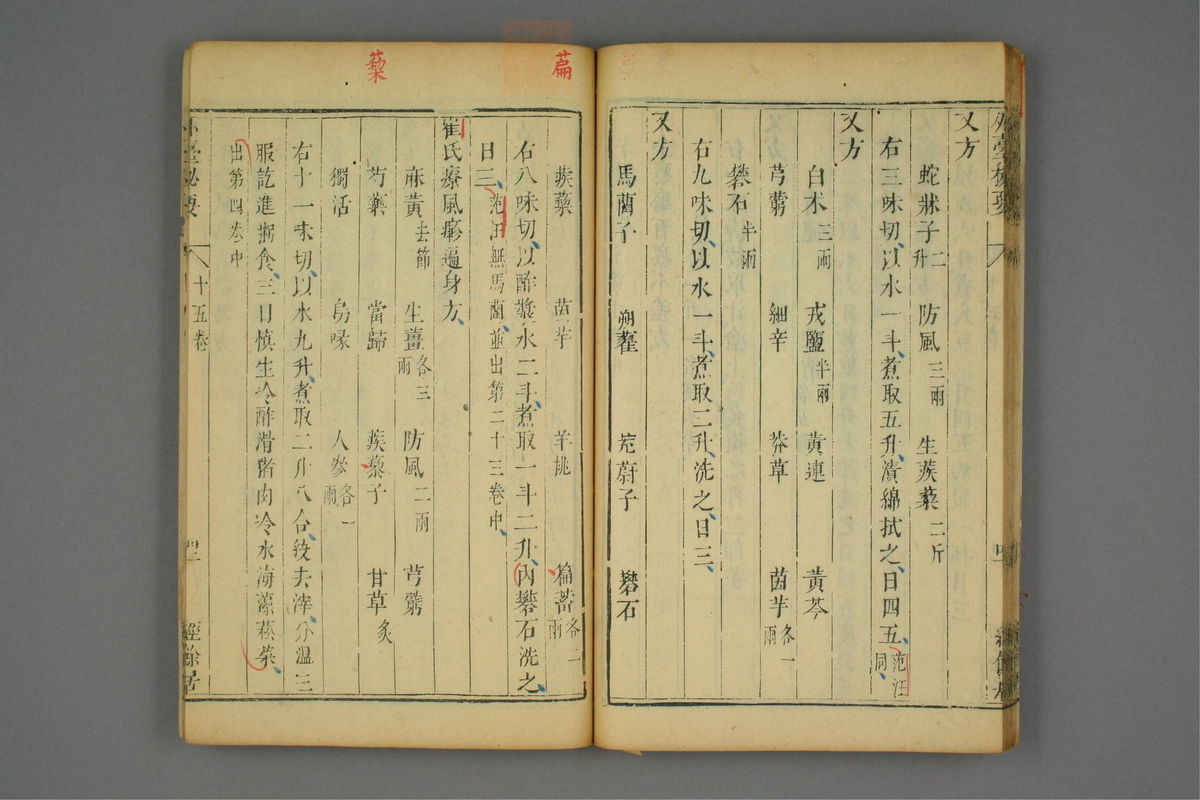 又方
蛇牀子二升 防風三兩 生蒺藜二斤
右三味切以水一斗煮取五升漬綿拭之日四五范汪同
又方
白朮三兩 戎鹽半兩 黃連 黃芩
芎藭 細辛 莽草 茵芋各一兩
礬石半兩
右九味切以水一斗煮取三升洗之日三
又方
馬藺子 蒴藋 茺蔚子 礬石
篇
蒺藜 茵芋 羊桃 篇蓄各二兩
右八味切以酢漿水二斗煮取一斗二升內礬石洗之
日三范汪無馬藺並出第二十三卷中
崔氏療風㾦遍身方
麻黃去節 生薑各三兩 防風二兩 芎藭
藜
芍藥 當歸 蒺藜子 甘草炙
獨活 烏喙 人參各一兩
右十一味切以水九升煮取二升八合絞去滓分溫三
服訖進粥食三日慎生冷酢滑猪肉冷水海藻菘菜
出第四卷中
外臺秘要 十五卷 經餘居